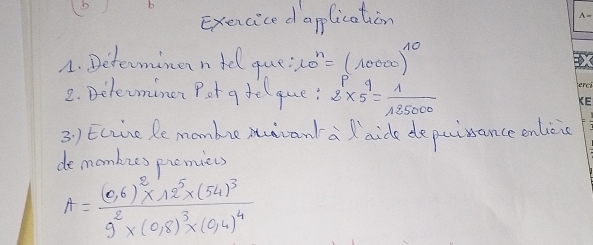 (b b
Exercice d'application
1. Déterminer n tel que : 10^n = (10000)^10
2. Déterminer P et q tel que : 2^p × 5^q = 1/125000
3.) Ecrire le nombre suivant à l'aide de puissance entière
de nombres premiers
A = ((0,6)^2 × 12^5 × (54)^3) / (9^2 × (0,8)^3 × (0,4)^4)
A=
EX
erci